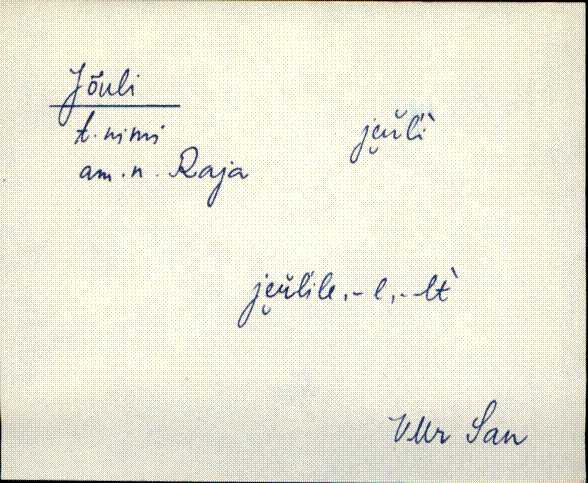 Jõuli
t. nimi
am. n. Raja
je̮u̯lì
je̮u̯lile, -l, -lt̀
VMr San